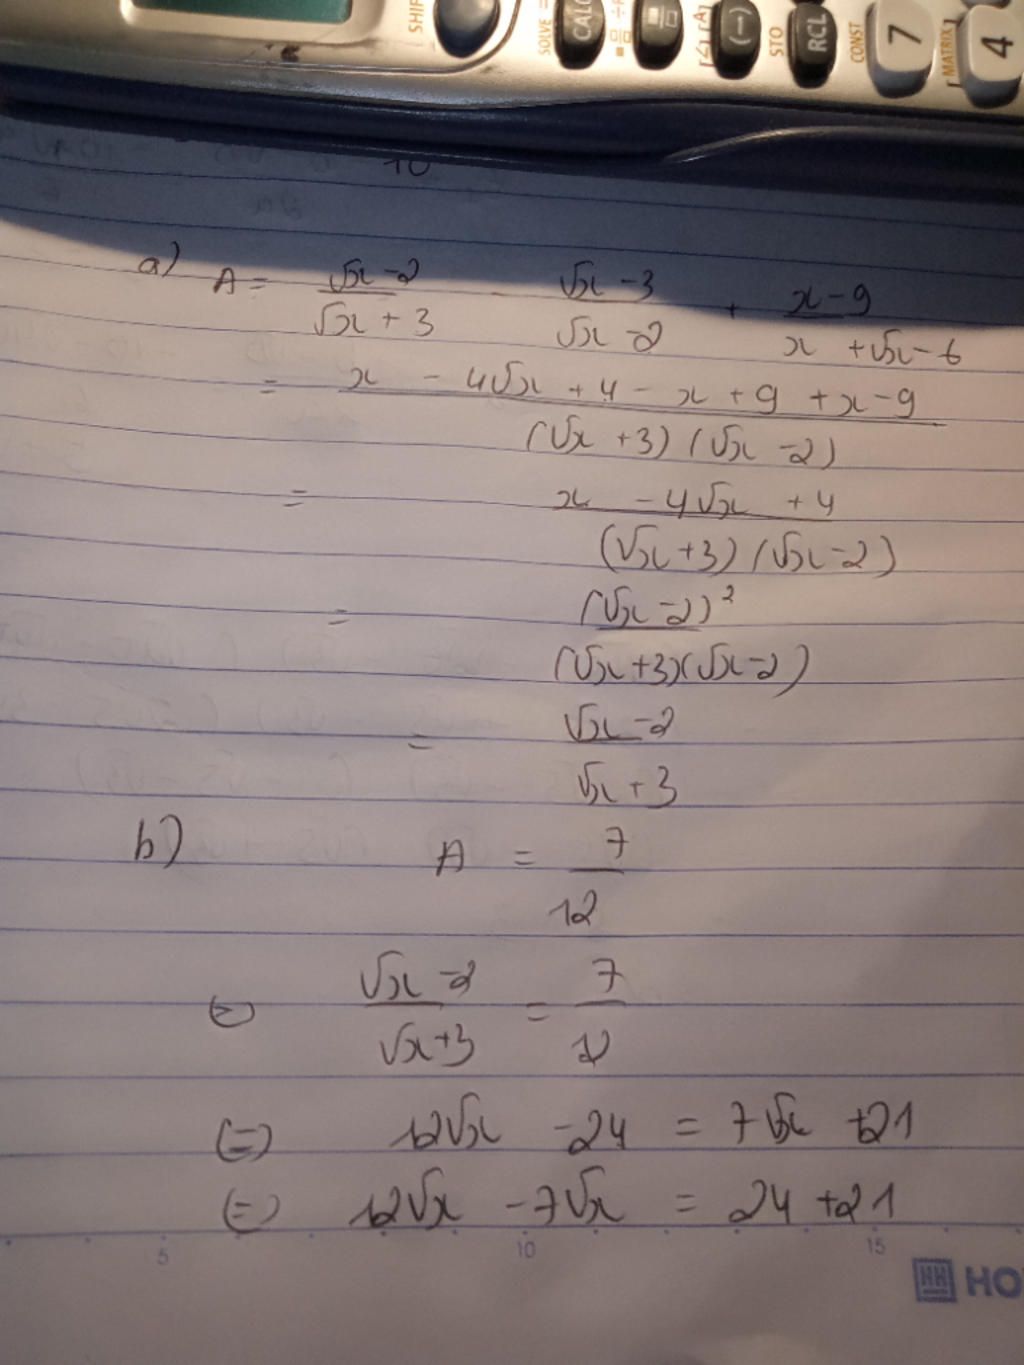 SHIF SOLVE = CALC [(-) ∠A] (-) STO RCL CONST 7 [MATRIX] 4
10
a) A = (√x - 2)/(√x + 3) - (√x - 3)/(√x - 2) + (x - 9)/(x + √x - 6)
= (x - 4√x + 4 - x + 9 + x - 9)/((√x + 3)(√x - 2))
= (x - 4√x + 4)/((√x + 3)(√x - 2))
= (√x - 2)²/((√x + 3)(√x - 2))
= (√x - 2)/(√x + 3)
b) A = 7/12
(=) (√x - 2)/(√x + 3) = 7/12
(=) 12√x - 24 = 7√x + 21
(=) 12√x - 7√x = 24 + 21
5 10 15
HH HO